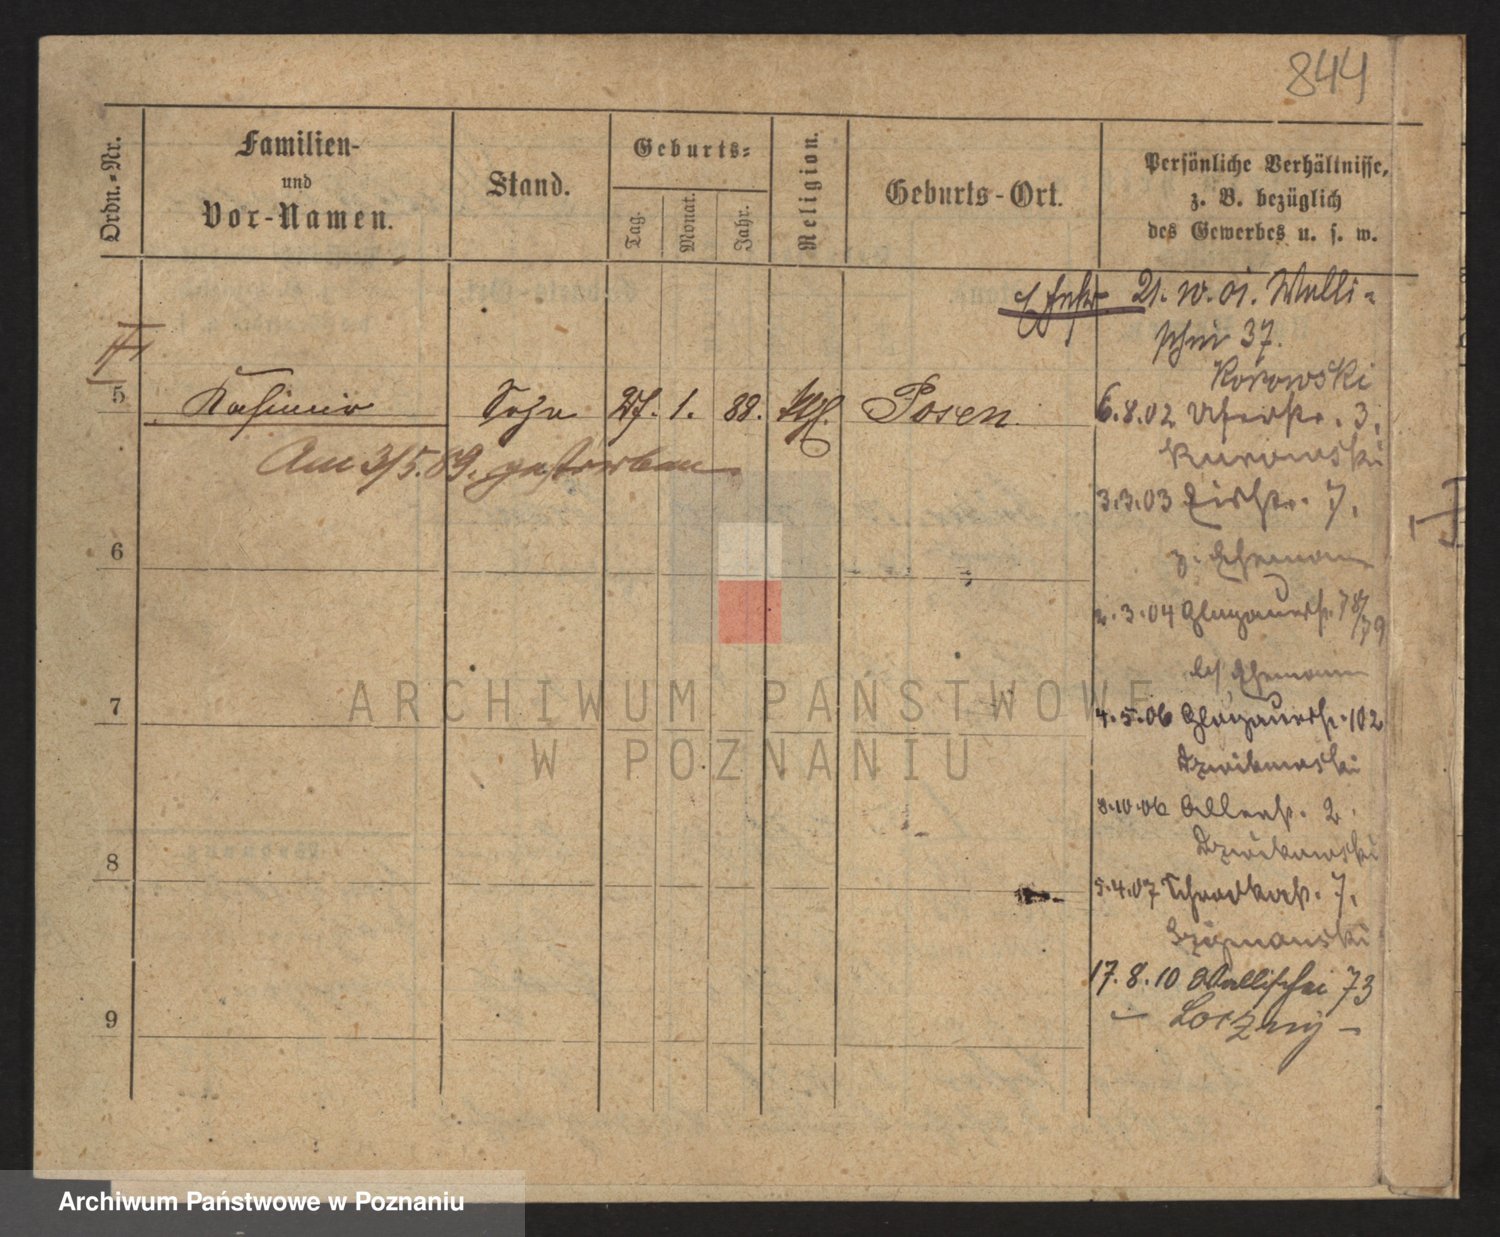 844
Ordn.-Nr.
Familien-
und
Vor-Namen.
Stand.
Geburts-
Tag.
Monat.
Jahr.
Religion.
Geburts-Ort.
Persönliche Verhältnisse,
z. B. bezüglich
des Gewerbes u. s. w.
21. 10. 01. Walli-
schei 37.
Korowski
5 Kasimir Sohn 27. 1. 88. kth. Posen.
Am 3/5.89. gestorben
6.8.02 Uferstr. 3.
Kurowski
3.3.03 Fischstr. 7.
z. Ehemann
6
2.3.04 Glogauerstr. 78/79
bs/ Ehemann
7
4.5.06 Glogauerstr. 102
Dzwikowski
8.10.06 Allerstr. 2.
Dzwikowski
8
5.4.07 Schrodkastr. 7.
Szymanski
17.8.10 Wallischei 73
- Loezny -
9
ARCHIWUM PAŃSTWOWE
W POZNANIU
Archiwum Państwowe w Poznaniu